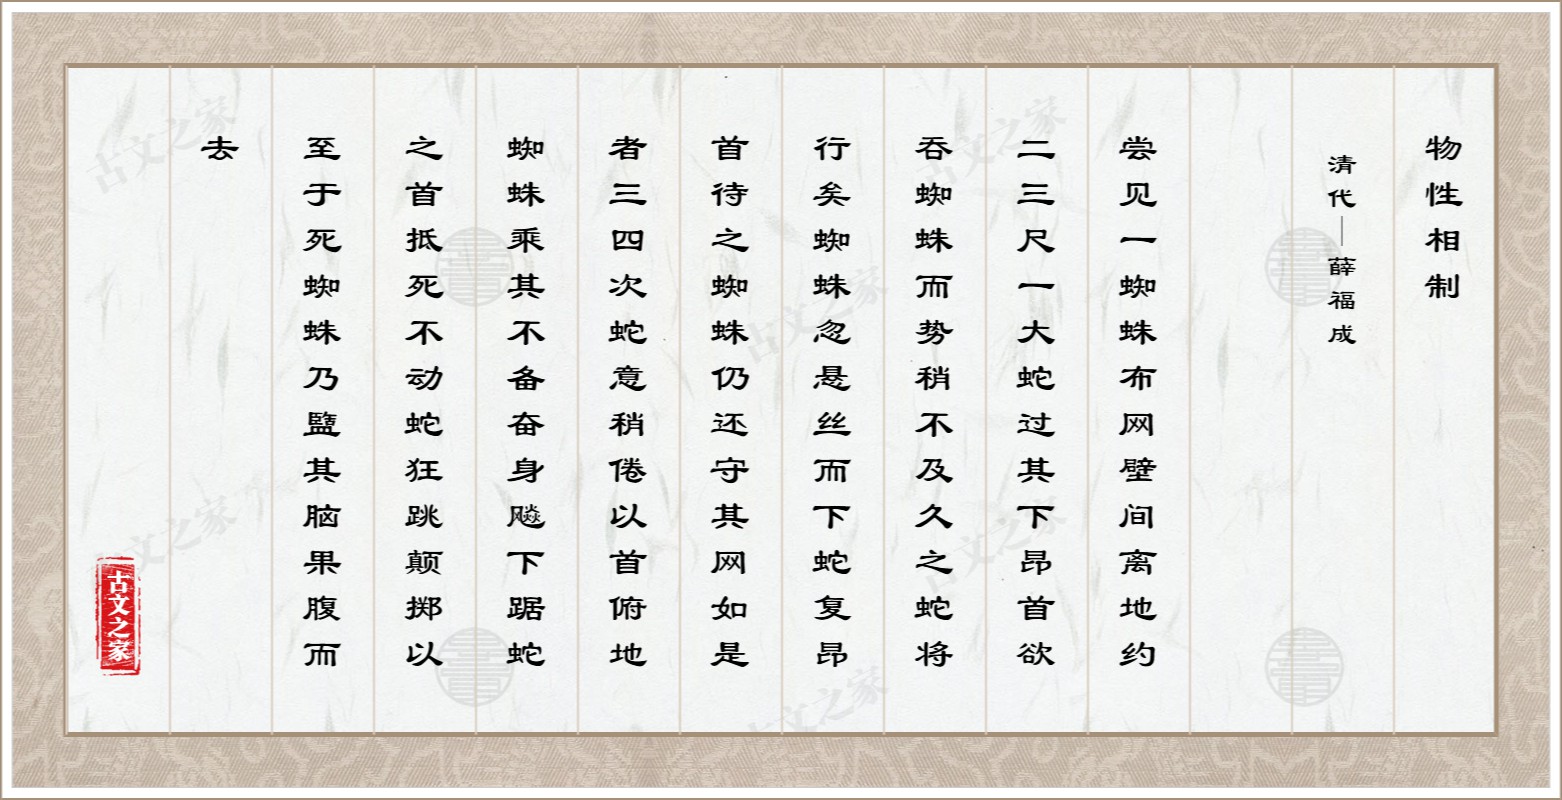 物性相制
清代—薛福成
尝见一蜘蛛布网壁间离地约
二三尺一大蛇过其下昂首欲
吞蜘蛛而势稍不及久之蛇将
行矣蜘蛛忽悬丝而下蛇复昂
首待之蜘蛛仍还守其网如是
者三四次蛇意稍倦以首俯地
蜘蛛乘其不备奋身飚下踞蛇
之首抵死不动蛇狂跳颠掷以
至于死蜘蛛乃盬其脑果腹而
去
古文之家